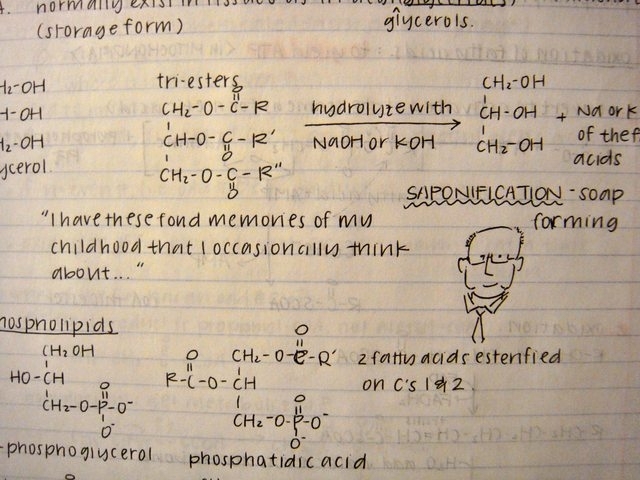 normally exist in tissues as tri
(storage form)
glycerols.
tri-esters
H2-OH
H-OH
H2-OH
ycerol
O
CH2-O-C-R
CH-O-C-R'
O
CH2-O-C-R"
O
hydrolyze with
NaOH or KOH
CH2-OH
CH-OH
CH2-OH
+ Na or K
of the f
acids
SAPONIFICATION - soap
forming
"I have these fond memories of my
childhood that I occasionally think
about..."
hospholipids
CH2OH
HO-CH
O
CH2-O-P-O-
O-
-phosphoglycerol
O
CH2-O-C-R'
O
R-C-O-CH
O
CH2-O-P-O-
O-
phosphatidic acid
2 fatty acids esterified
on C's 1 & 2